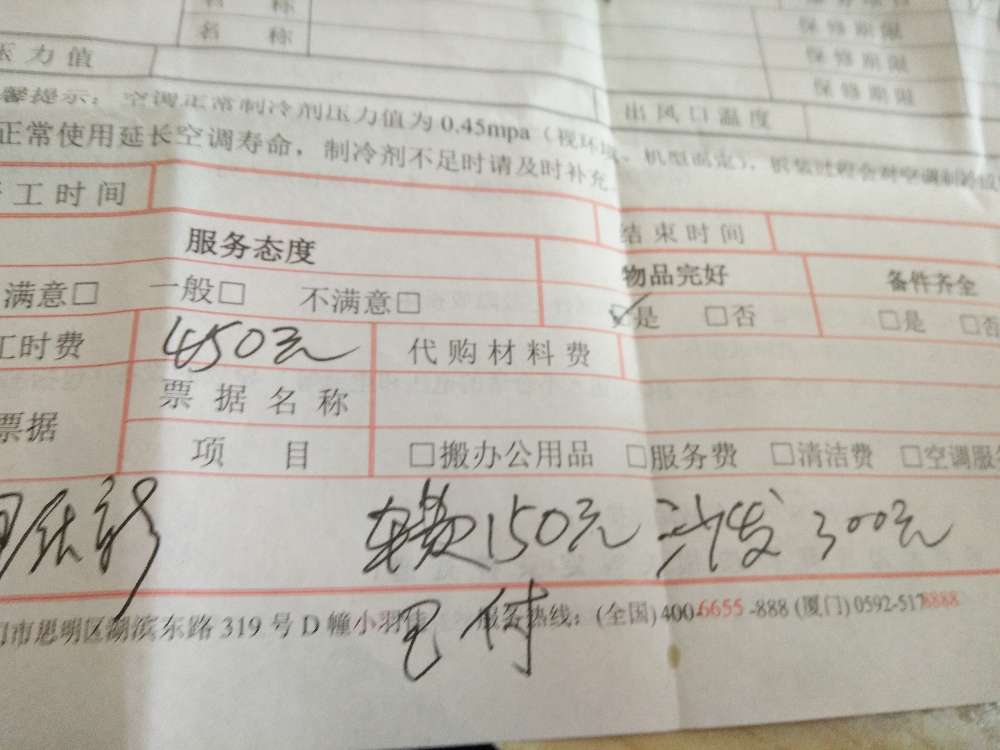 名 称
名 称
保修期限
保修期限
保修期限
压力值
出风口温度
馨提示：空调正常制冷剂压力值为0.45mpa（视环境、机型而定），拆装过程会对空调制冷
正常使用延长空调寿命，制冷剂不足时请及时补充
工时间
结束时间
服务态度
物品完好
备件齐全
满意□ 一般□ 不满意□
☑是 □否
□是 □否
工时费 450元 代购材料费
票据 票据名称
项 目 □搬办公用品 □服务费 □清洁费 □空调服务
车费150元 沙发300元
已付
门市思明区湖滨东路319号D幢小羽佳 服务热线：(全国)400-6655-888 (厦门)0592-5178888